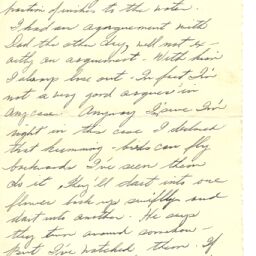 portion of finishes to the water.
I had an agarguement with
Dad the other day, well not ex
actly an arguement - With him
I always lose out - In fact I'm
not a very good arguer in
any case. Anyway I'm sure I'm
right in this case I believed
that humming - birds can fly
backwards I've seen them
do it, they'll dart into one
flower back up swiftly and
dart into another. He says
they turn around somehow -
But I've watched them. If